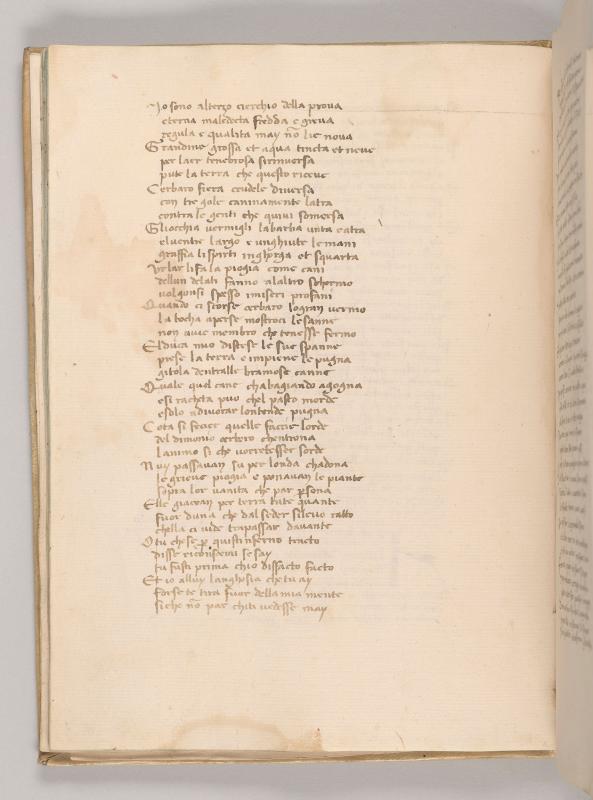 Io sono alterzo cierchio della prova
eterna maledecta fredda e greva
regula e qualita may nō lie nova
Grandine grossa et aqua tincta et neve
per laer tenebrosa si rinversa
pute la terra che questo riceve
Cerbaro fiera crudele diversa
con tre gole caninamente latra
contra le genti che quivi somersa
Gliocchia vermigli la barba unta e atra
el ventre largo e unghiute le mani
graffia li spirti inghorga et squarta
Urlar li fa la piogia come cani
dellun delati fanno alaltro schermo
volgonsi spesso imiseri profani
Quando ci scorse cerbaro logran vermo
la bocha aperse mostroci le sanne
non avie membro che tenesse fermo
El duca mio distese le sue spanne
prese la terra e impiene le pugna
gitola dentralle bramose canne
Quale quel cane chabagiando agogna
esi racheta puo chel pasto morde
esolo adivorar lontende pugna
Cota si fecier quelle faccie lorde
del dimonio cerbero chentrona
lanimo si che vorrebesser sorde
Nuy passavan su per londa chadona
le grieve piogia e ponavan le piante
sopra lor vanita che par psona
Elle giacean per terra tute quante
fuor duna che dal seder si levo ratto
chella ci vide trapassar davante
O tu che se p quistinferno tracto
disse riconoscimi se say
tu fusti prima chio disfacto facto
Et io alluy langhosia che tu ay
forse te tira fuor della mia mente
si che nō par chiti vedesse may